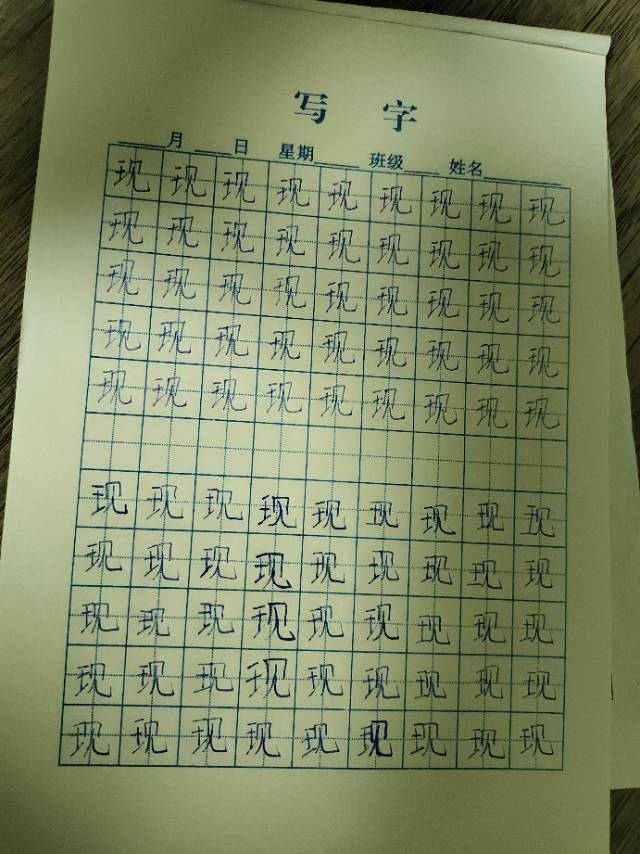 写 字
____月____日 星期____ 班级____ 姓名________
现 现 现 现 现 现 现 现 现
现 现 现 现 现 现 现 现 现
现 现 现 现 现 现 现 现 现
现 现 现 现 现 现 现 现 现
现 现 现 现 现 现 现 现 现
现 现 现 现 现 现 现 现 现
现 现 现 现 现 现 现 现 现
现 现 现 现 现 现 现 现 现
现 现 现 现 现 现 现 现 现
现 现 现 现 现 现 现 现 现